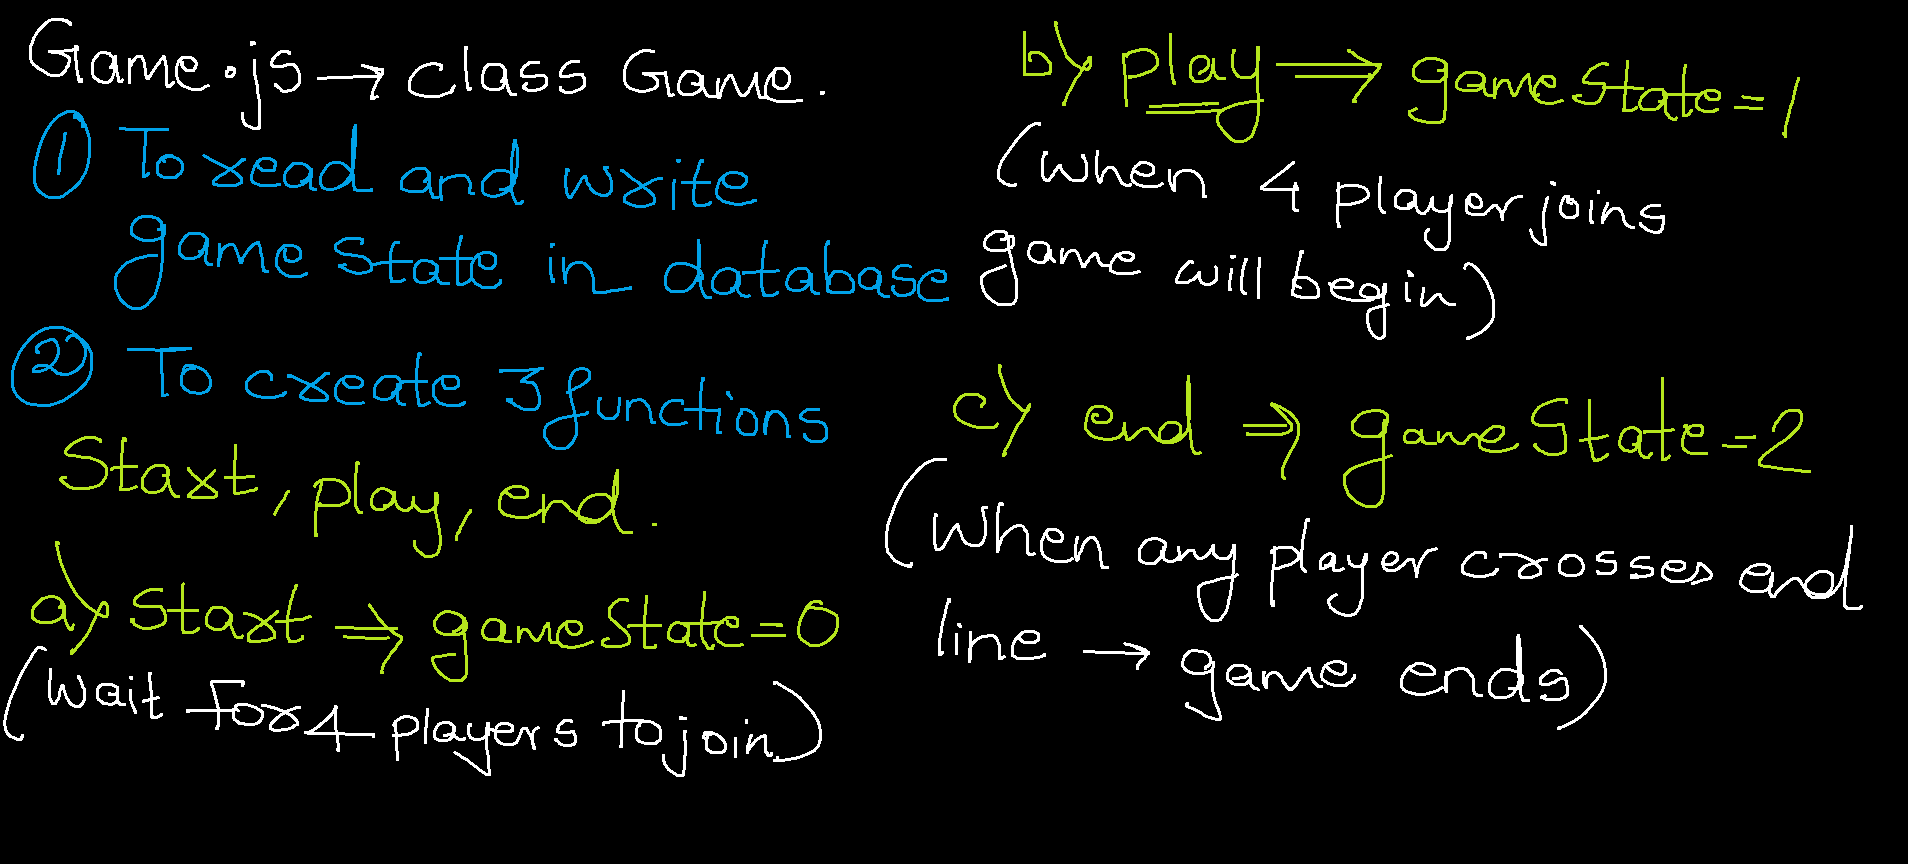 Game.js → class Game.
① To read and write
game State in database
② To create 3 functions
Start, play, end.
a) Start ⇒ gameState=0
(Wait for 4 players to join)
b) play ⇒ gameState=1
(when 4 player joins
game will begin)
c) end ⇒ gameState=2
(when any player crosses end
line → game ends)